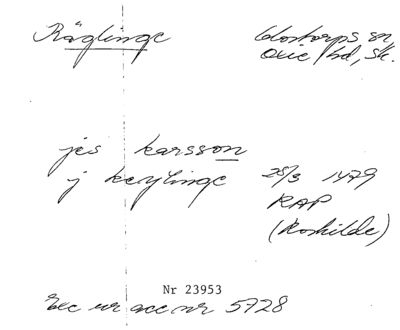 Räglinge
Glostorps sn
Oxie hd, Sk.
jes karsson
j keylinge 28/3 1479
RAP
(Roskilde)
Nr 23953
Exc ur acc nr 5728